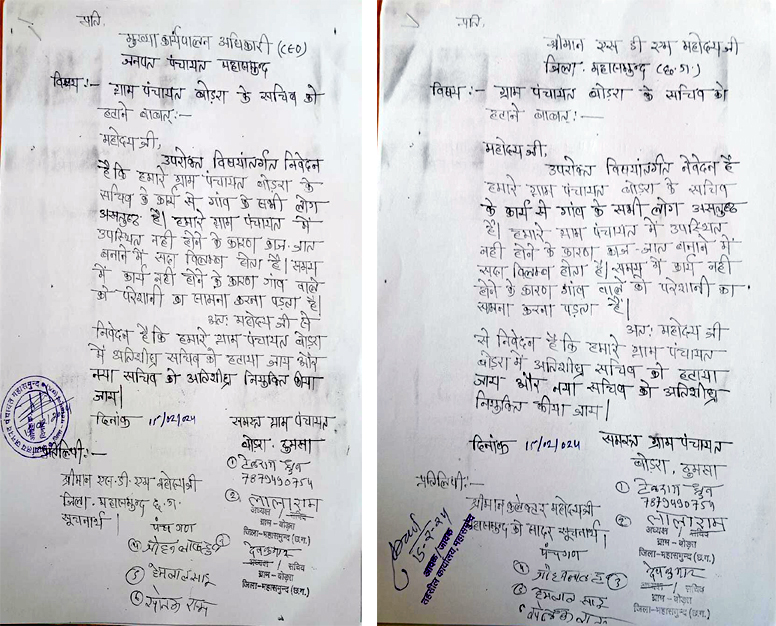 प्रति,
मुख्य कार्यपालन अधिकारी (CEO)
जनपद पंचायत महासमुन्द
विषय :- ग्राम पंचायत बोडरा के सचिव को
हटाने बाबत् :-
महोदय जी,
उपरोक्त विषयांतर्गत निवेदन
है कि हमारे ग्राम पंचायत बोडरा के
सचिव के कार्य से गांव के सभी लोग
असतुष्ठ है। हमारे ग्राम पंचायत में
उपस्थित नही होने के कारण काज-जात
बनाने में सदा विलम्ब होता है। समय
में कार्य नही होने के कारण गांव वाले
को परेशानी का सामना करना पड़ता है।
अतः महोदय जी से
निवेदन है कि हमारे ग्राम पंचायत बोडरा
में अतिशीघ्र सचिव को हटाया जाय और
नया सचिव को अतिशीघ्र नियुक्ति कीया
जाय।
दिनांक 15/02/024 समस्त ग्राम पंचायत
बोडरा, डुमसा
प्रतिलिपी :-
① टेकराम ध्रुव
7879490754
श्रीमान एस.डी.एम महोदय जी
जिला. महासमुन्द छ.ग.
सूचनार्थ।
② लालाराम
अध्यक्ष / सचिव
ग्राम-बोड़रा
जिला-महासमुन्द (छ.ग.)
पंच गण
देवकुमार
अध्यक्ष / सचिव
ग्राम-बोड़रा
जिला-महासमुन्द (छ.ग.)
⑤ हेमलाल साहू
प्रति,
श्रीमान एस डी एम महोदय जी
जिला. महासमुन्द (छ.ग.)
विषय :- ग्राम पंचायत बोडरा के सचिव को
हटाने बाबत् :-
महोदय जी,
उपरोक्त विषयांतर्गत नेवेदन है
कि हमारे ग्राम पंचायत बोडरा के सचिव
के कार्य से गांव के सभी लोग असतुष्ठ
है। हमारे ग्राम पंचायत में उपस्थित
नही होने के कारण काज-जात बनाने में
सदा विलम्ब होता है। समय में कार्य नही
होने के कारण गांव वाले को परेशानी का
सामना करना पड़ता है।
अतः महोदय जी
से निवेदन है कि हमारे ग्राम पंचायत
बोडरा में अतिशीघ्र सचिव को हटाया
जाय और नया सचिव को अतिशीघ्र
नियुक्ति कीया जाय।
दिनांक 15/02/024 समस्त ग्राम पंचायत
बोडरा, डुमसा
प्रतिलिपी :-
① टेकराम ध्रुव
7879490754
श्रीमान कलेक्टर महोदय जी
महासमुन्द को सादर सूचनार्थ।
② लालाराम
अध्यक्ष / सचिव
ग्राम-बोड़रा
जिला-महासमुन्द (छ.ग.)
पंचगण
देवकुमार
अध्यक्ष / सचिव
ग्राम-बोड़रा
जिला-महासमुन्द (छ.ग.)
⑤ हेमलाल साहू
15-2-24
आवक / जावक
तहसील कार्यालय, महासमुन्द